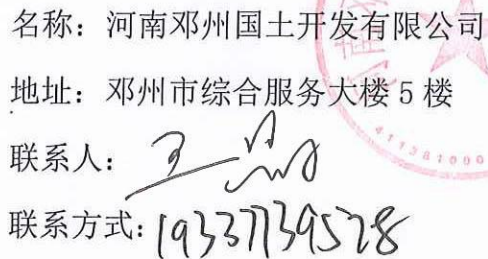 名称：河南邓州国土开发有限公司
地址：邓州市综合服务大楼5楼
联系人：王
联系方式：19337739528